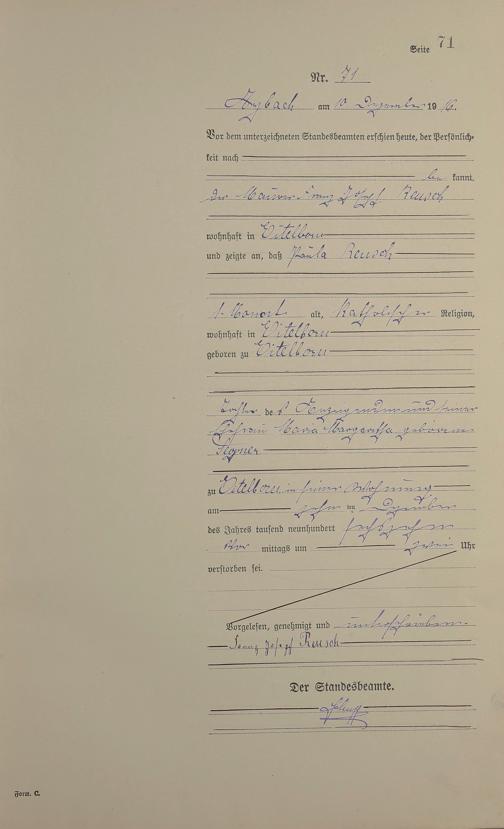 Seite 71
Nr. 71
Arzbach am 10 Dezember 19 16.
Vor dem unterzeichneten Standesbeamten erschien heute, der Persönlich-
keit nach
be kannt,
der Maurer Franz Josef Reusch
wohnhaft in Eitelborn
und zeigte an, daß Paula Reusch
1 Monat alt, katholischer Religion,
wohnhaft in Eitelborn
geboren zu Eitelborn
Tochter des Anzeigenden und seiner
Ehefrau Maria Margaretha geborenen
zu Eitelborn in seiner Wohnung
am zehn ten Dezember
des Jahres tausend neunhundert sechszehn
Vor mittags um zwei Uhr
verstorben sei.
Vorgelesen, genehmigt und unterschrieben.
Franz Josef Reusch
Der Standesbeamte.
Form. C.